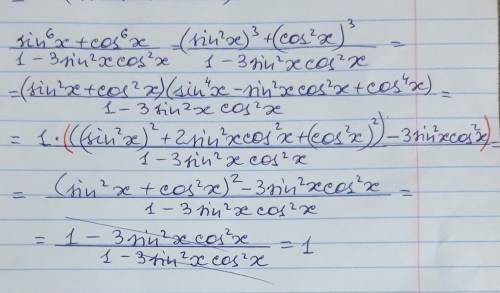 sin⁶x + cos⁶x / 1 - 3sin²xcos²x = (sin²x)³ + (cos²x)³ / 1 - 3sin²x cos²x =
= (sin²x + cos²x)(sin⁴x - sin²xcos²x + cos⁴x) / 1 - 3sin²x cos²x =
= 1·(((sin²x)² + 2sin²xcos²x + (cos²x)²) - 3sin²xcos²x) / 1 - 3sin²x cos²x =
= (sin²x + cos²x)² - 3sin²xcos²x / 1 - 3sin²x cos²x =
= 1 - 3sin²xcos²x / 1 - 3sin²xcos²x = 1